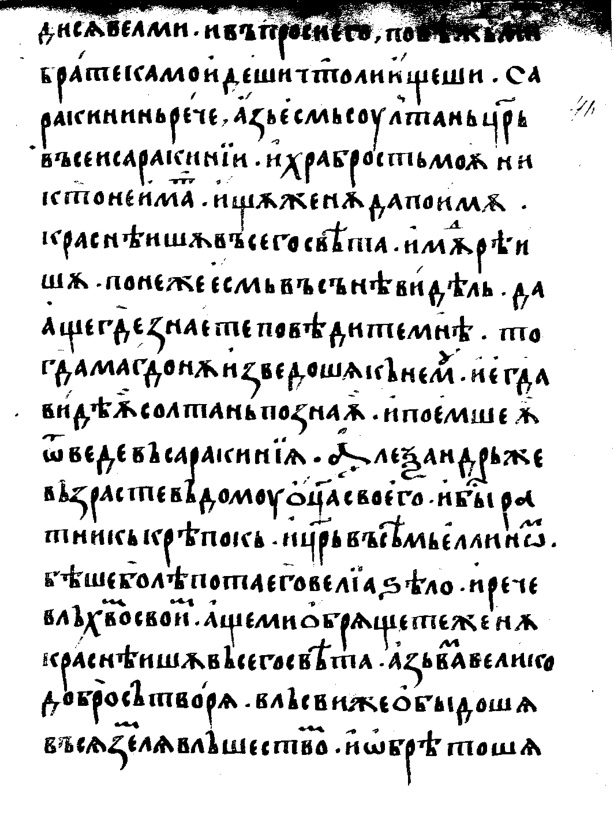 дисѧвелми · ивъпросиего, повѣжьми
братеікамоидешичтолиищеши · Са
ракининьрече, азьесмьсоултаньцр҃ь
въсеисаракинїи · ихрабростьмоѫни
ктонеимат · ищѫженѫдапоимѫ ·
краснѣишѫвъсегосвѣта · имѫдрѣи
шѫ · понежеесмьвъсънѣвидѣль · да
ащегдезнаетеповѣдитемнѣ · то
гдамагдонѫизведошѫкънемꙋ · иегда
видѣѫсолтаньпознаѫ · ипоемшеѫ
ѿведевъсаракинїѧ · Алеѯандрьже
възрастевъдомоуоц҃асвоего · ибы́ра
тникькрѣпокь · ицр҃ьвъсѣмьеллинѡ ·
бѣшеболѣпотаеговелїаѕѣло · ирече
влъхвомсвоим · ащемиобрѧщетеженѫ
краснѣишѫвъсегосвѣта · азьвамвелико
добросътворѧ · влъсвижеобыдошѫ
въсѫземлѧвлъшествомъ · иѡбрѣтошѫ